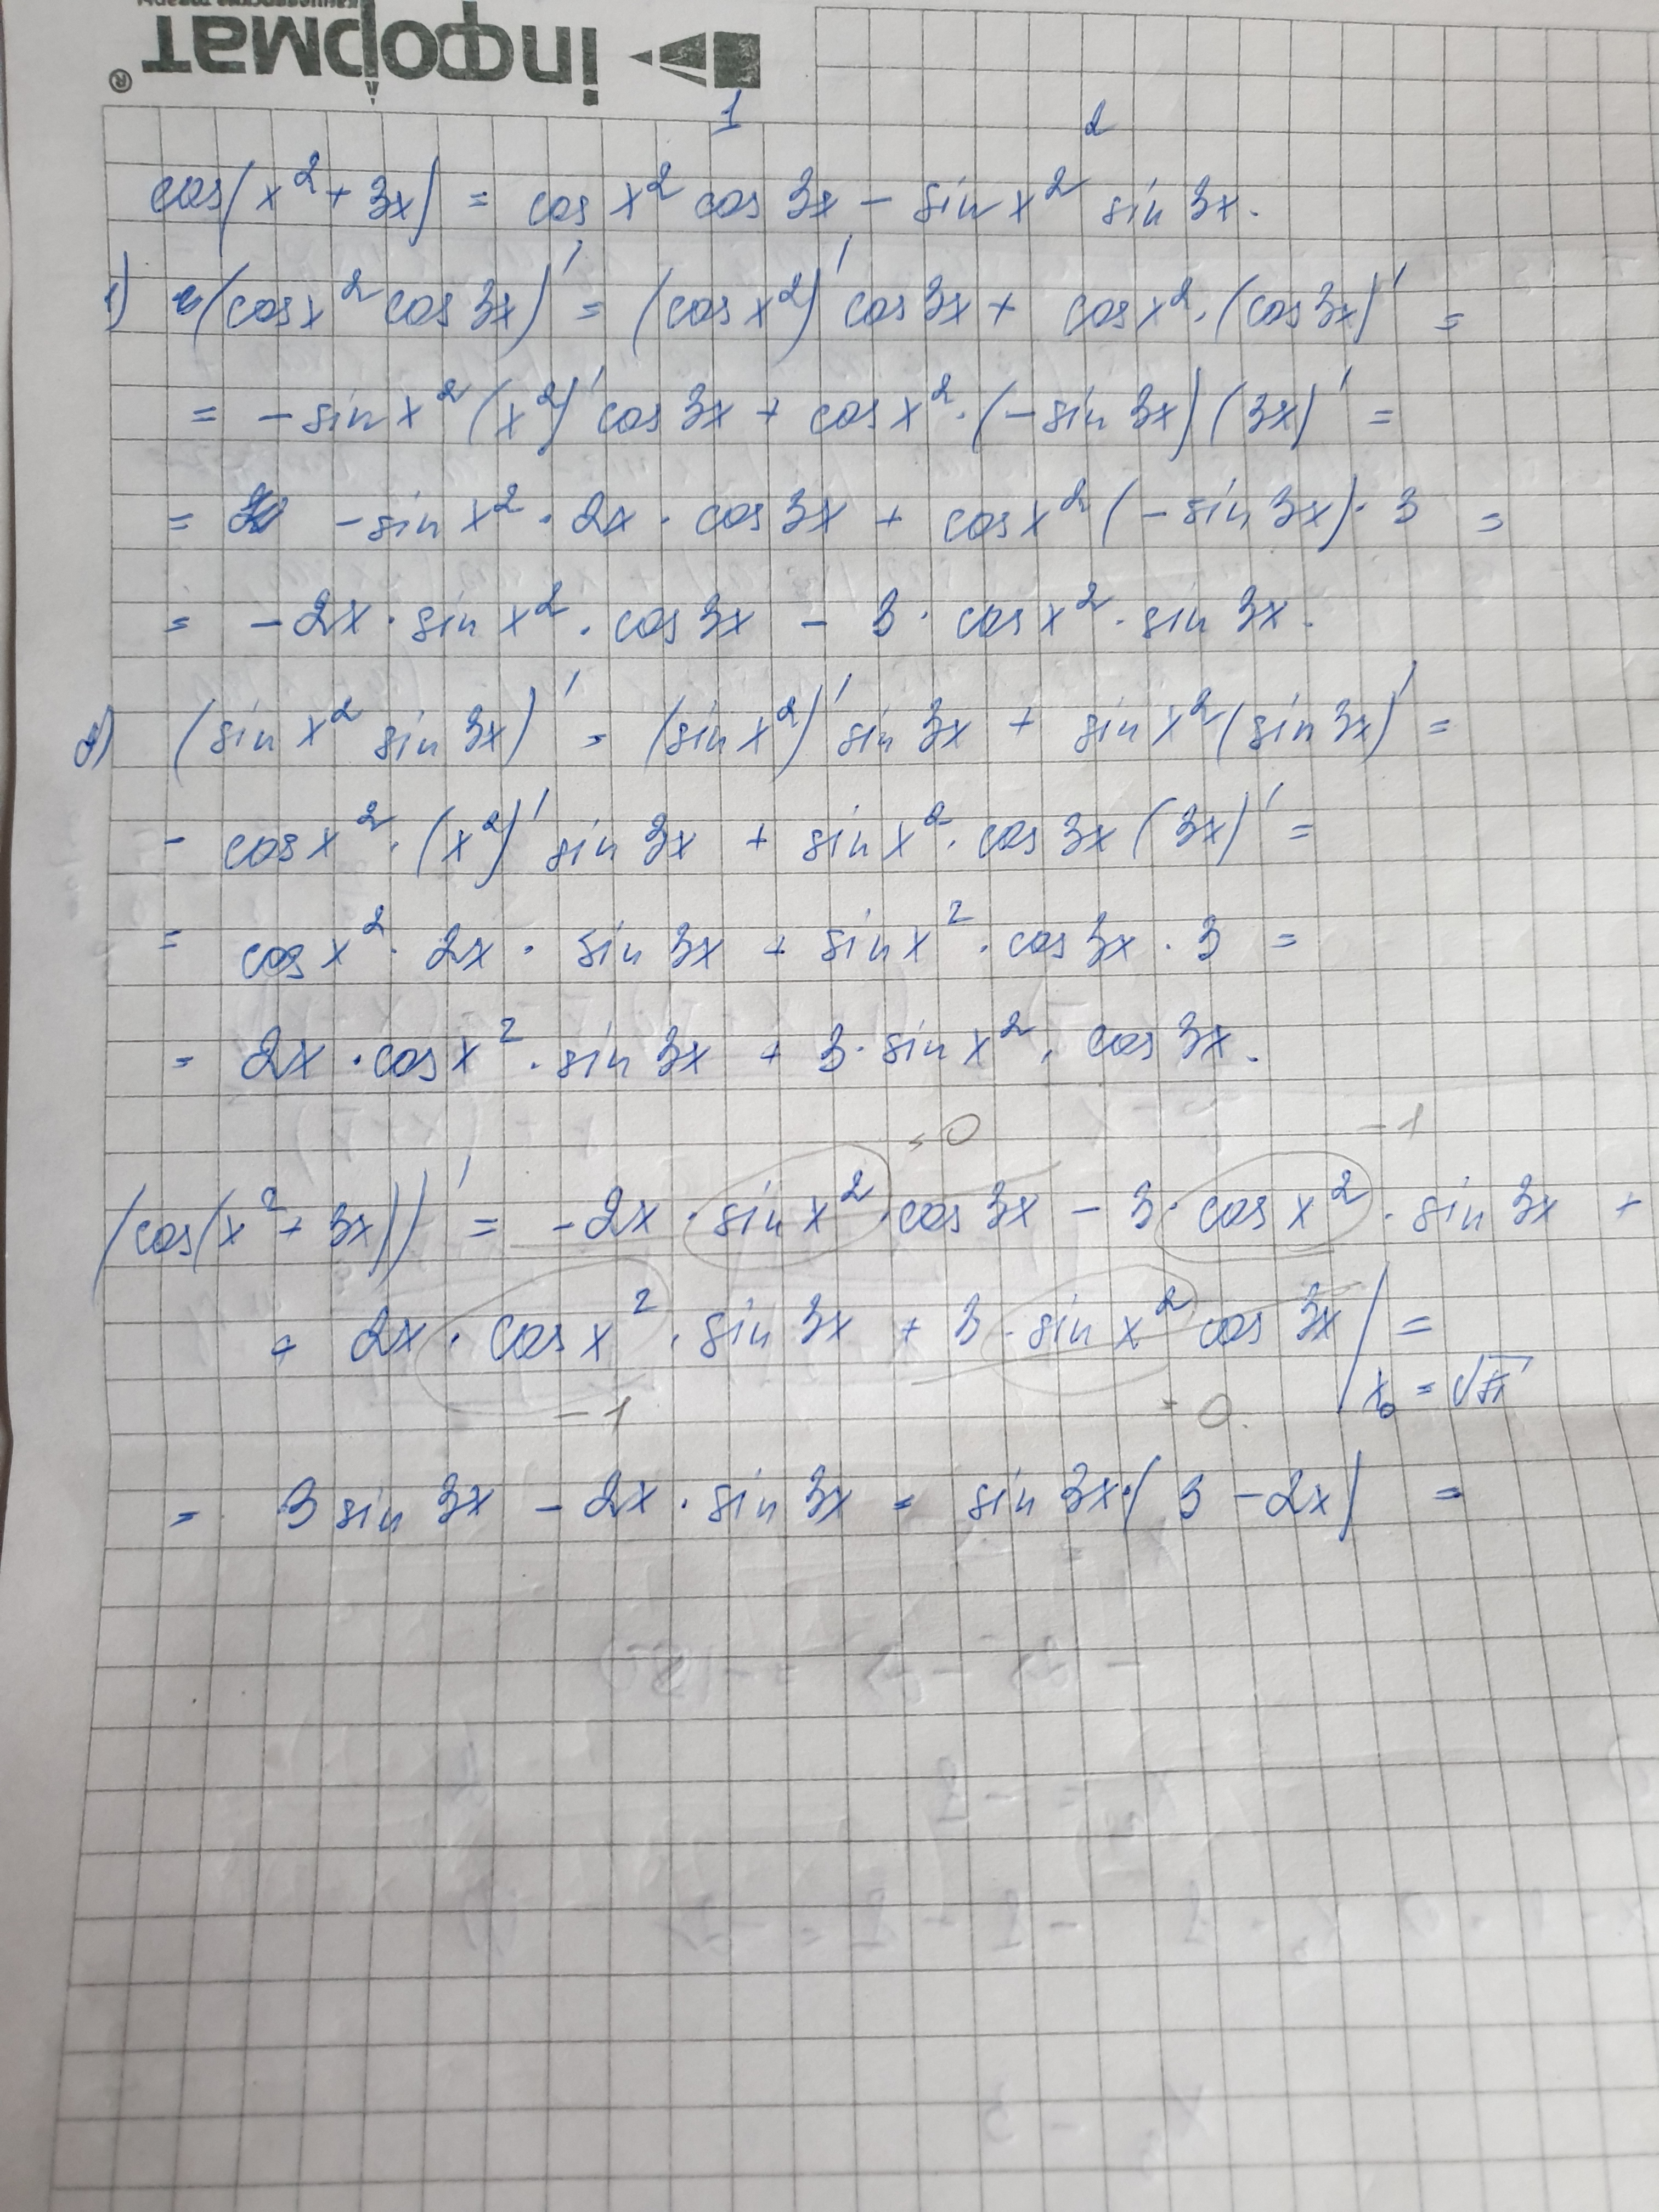 інформат®
1 2
cos(x² + 3x) = cos x² cos 3x - sin x² sin 3x.
1) (cos x² cos 3x)' = (cos x²)' cos 3x + cos x² · (cos 3x)' =
= - sin x² (x²)' cos 3x + cos x² · (- sin 3x) (3x)' =
= - sin x² · 2x · cos 3x + cos x² (- sin 3x) · 3 =
= - 2x · sin x² · cos 3x - 3 · cos x² · sin 3x.
2) (sin x² sin 3x)' = (sin x²)' sin 3x + sin x² (sin 3x)' =
= cos x² · (x²)' sin 3x + sin x² · cos 3x (3x)' =
= cos x² · 2x · sin 3x + sin x² · cos 3x · 3 =
= 2x · cos x² · sin 3x + 3 · sin x² · cos 3x.
= 0 -1
(cos(x² + 3x))' = - 2x · sin x² · cos 3x - 3 · cos x² · sin 3x +
+ 2x · cos x² · sin 3x + 3 · sin x² cos 3x | =
-1 = 0. x₀ = √π
= 3 sin 3x - 2x · sin 3x = sin 3x · (3 - 2x) =